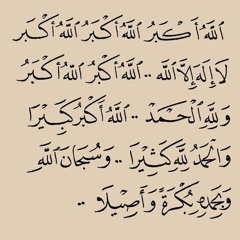 اللَّهُ أَكْبَرُ اللَّهُ أَكْبَرُ اللَّهُ أَكْبَر
لَا إِلَهَ إِلَّا اللَّه .. اللَّهُ أَكْبَرُ اللَّهُ أَكْبَرُ
وَلِلَّهِ الْحَمْدُ .. اللَّهُ أَكْبَرُ كَبِيْرَا
وَالْحَمْدُ لِلَّهِ كَثِيْرَا .. وَسُبْحَانَ اللَّهِ
وَبِحَمْدِهِ بُكْرَةً وَأَصِيْلَا ..